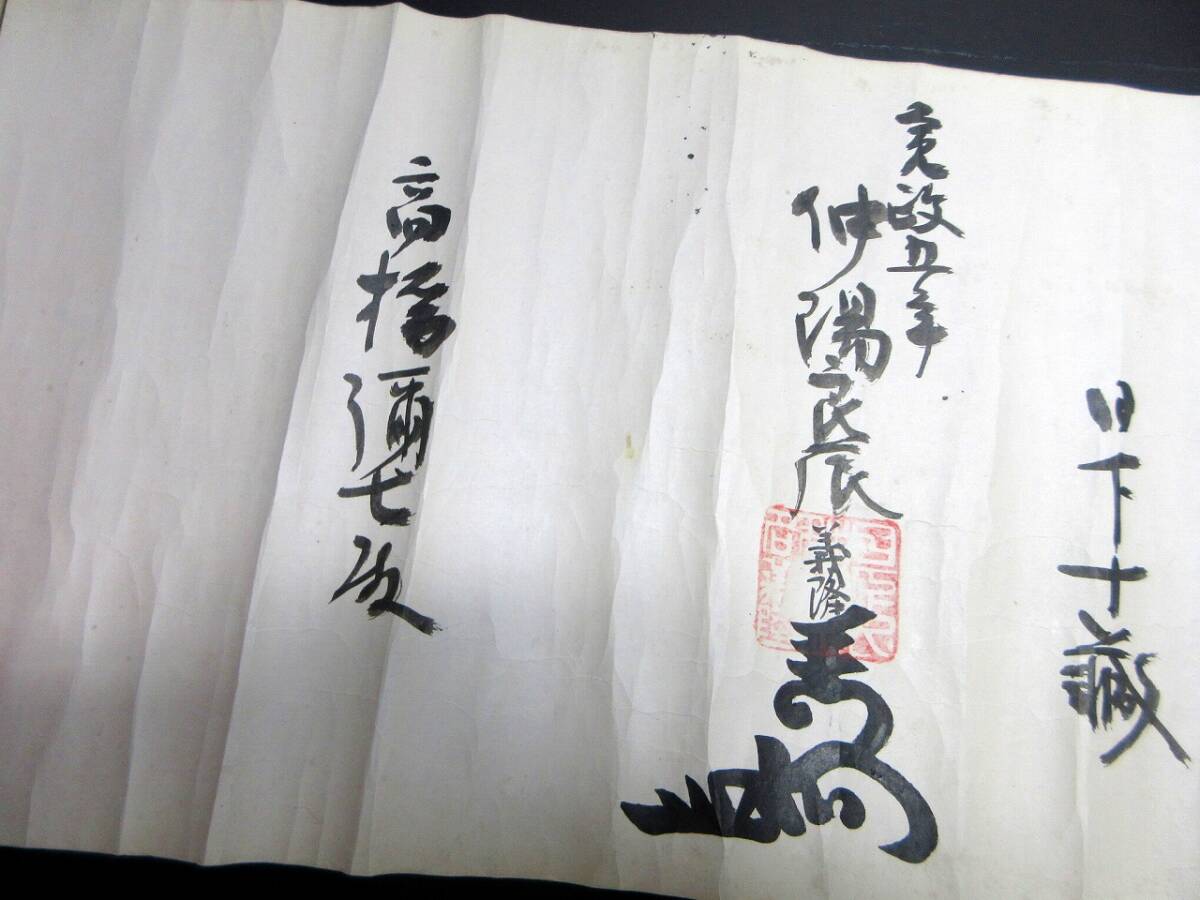 日下十藏
寛政五年
仲陽良辰
義隆
高橋彌七殿